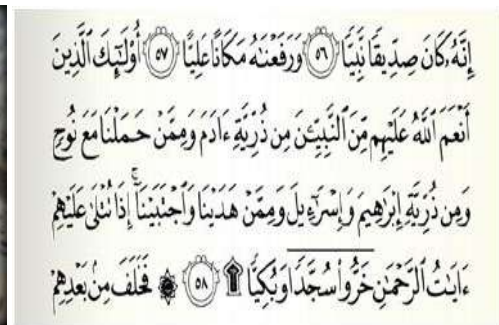 إِنَّهُۥ كَانَ صِدِّيقًا نَّبِيًّا ٥٦ وَرَفَعْنَٰهُ مَكَانًا عَلِيًّا ٥٧ أُو۟لَٰٓئِكَ ٱلَّذِينَ
أَنْعَمَ ٱللَّهُ عَلَيْهِم مِّنَ ٱلنَّبِيِّـۧنَ مِن ذُرِّيَّةِ ءَادَمَ وَمِمَّنْ حَمَلْنَا مَعَ نُوحٍ
وَمِن ذُرِّيَّةِ إِبْرَٰهِيمَ وَإِسْرَٰٓءِيلَ وَمِمَّنْ هَدَيْنَا وَٱجْتَبَيْنَآ ۚ إِذَا تُتْلَىٰ عَلَيْهِمْ
ءَايَٰتُ ٱلرَّحْمَٰنِ خَرُّوا۟ سُجَّدًا وَبُكِيًّا ۩ ٥٨ ۞ فَخَلَفَ مِنۢ بَعْدِهِمْ